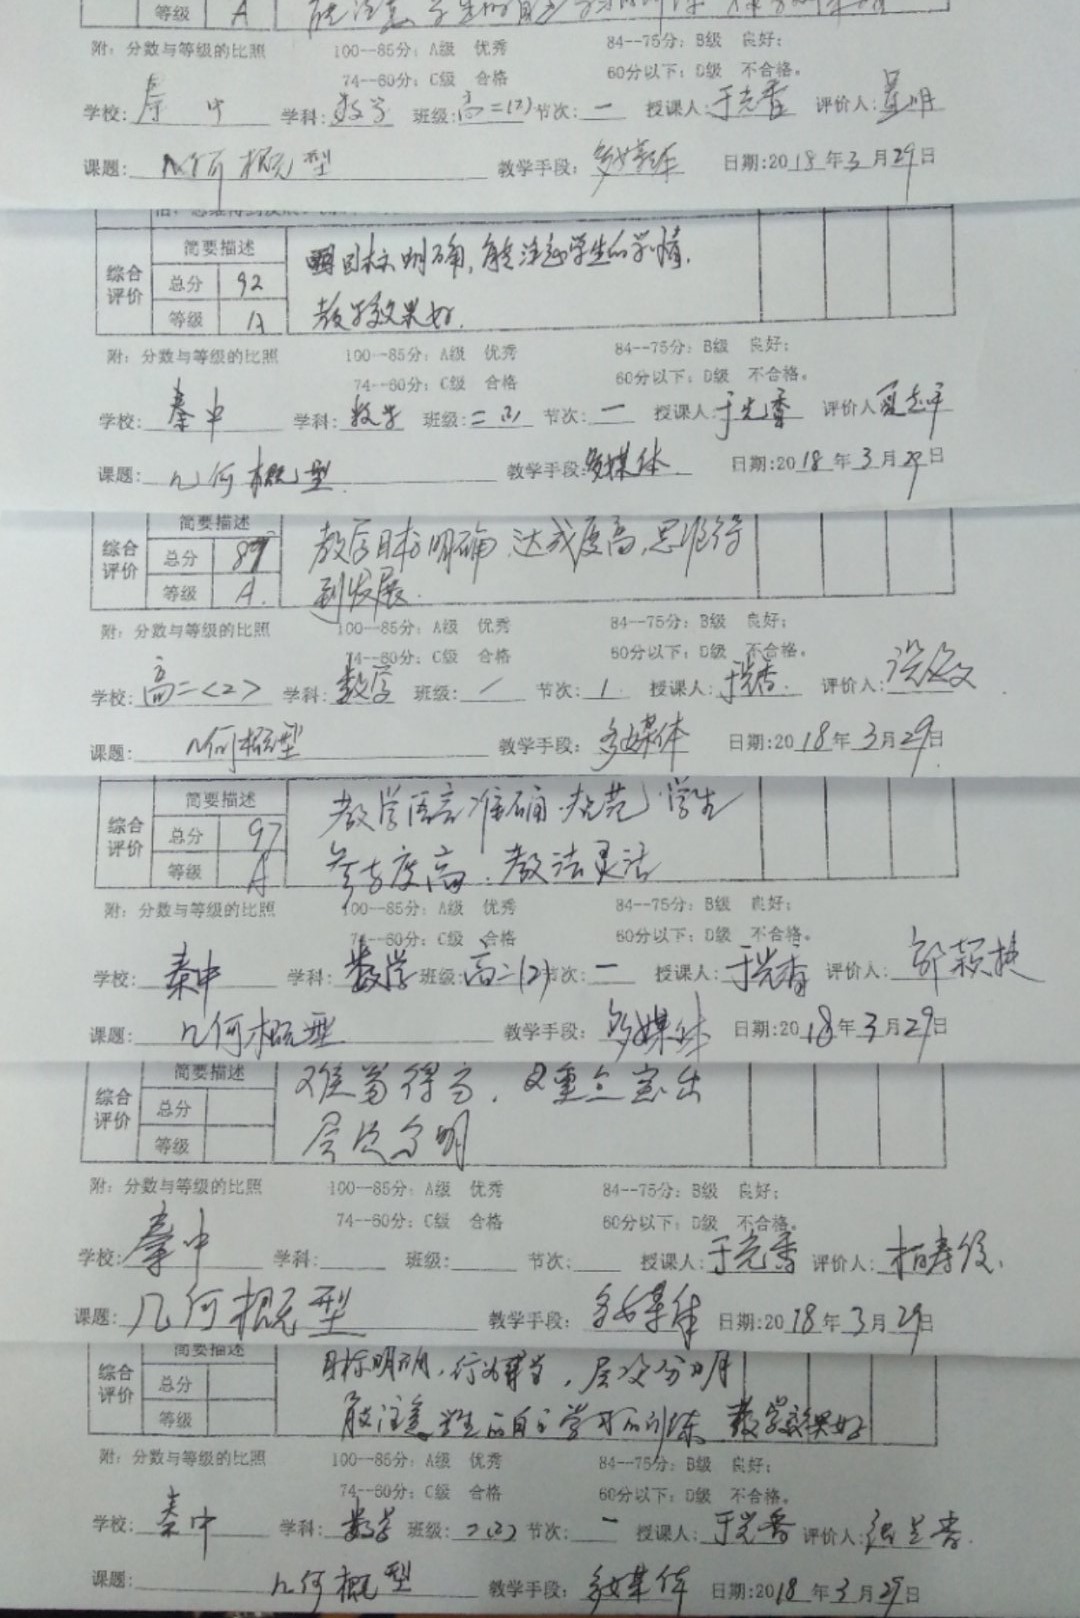 等级 A 能注意学生的自主学习的训练
附：分数与等级的比照 100--85分：A级 优秀 84--75分：B级 良好；
74--60分：C级 合格 60分以下：D级 不合格。
学校：秦中 学科：数学 班级：高二(2) 节次：一 授课人：于光香 评价人：
课题：几何概型 教学手段：多媒体 日期：2018年3月29日
简要描述 目标明确，能注意学生的学情，
综合评价 总分 92
等级 A 教学效果好.
附：分数与等级的比照 100--85分：A级 优秀 84--75分：B级 良好；
74--60分：C级 合格 60分以下：D级 不合格。
学校：秦中 学科：数学 班级：二(2) 节次：一 授课人：于光香 评价人：夏志平
课题：几何概型 教学手段：多媒体 日期：2018年3月29日
简要描述 教学目标明确,达成度高,思维得
综合评价 总分 89
等级 A. 到发展.
附：分数与等级的比照 100--85分：A级 优秀 84--75分：B级 良好；
74--60分：C级 合格 60分以下：D级 不合格。
学校：高二<2> 学科：数学 班级：/ 节次：1 授课人：于光香. 评价人：
课题：几何概型 教学手段：多媒体 日期：2018年3月29日
简要描述 教学语言准确.规范,学生
综合评价 总分 97
等级 A 参与度高.教法灵活
附：分数与等级的比照 100--85分：A级 优秀 84--75分：B级 良好；
74--60分：C级 合格 60分以下：D级 不合格。
学校：秦中 学科：数学 班级：高二(2) 节次：一 授课人：于光香 评价人：郭颖捷
课题：几何概型 教学手段：多媒体 日期：2018年3月29日
简要描述 难易得当，重点突出
综合评价 总分
等级 层次分明
附：分数与等级的比照 100--85分：A级 优秀 84--75分：B级 良好；
74--60分：C级 合格 60分以下：D级 不合格。
学校：秦中 学科： 班级： 节次： 授课人：于光香 评价人：
课题：几何概型 教学手段：多媒体 日期：2018年3月29日
简要描述 目标明确，行为得当，层次分明
综合评价 总分
等级 能注意学生的自主学习的训练 教学效果好
附：分数与等级的比照 100--85分：A级 优秀 84--75分：B级 良好；
74--60分：C级 合格 60分以下：D级 不合格。
学校：秦中 学科：数学 班级：二(2) 节次：一 授课人：于光香 评价人：
课题：几何概型 教学手段：多媒体 日期：2018年3月29日